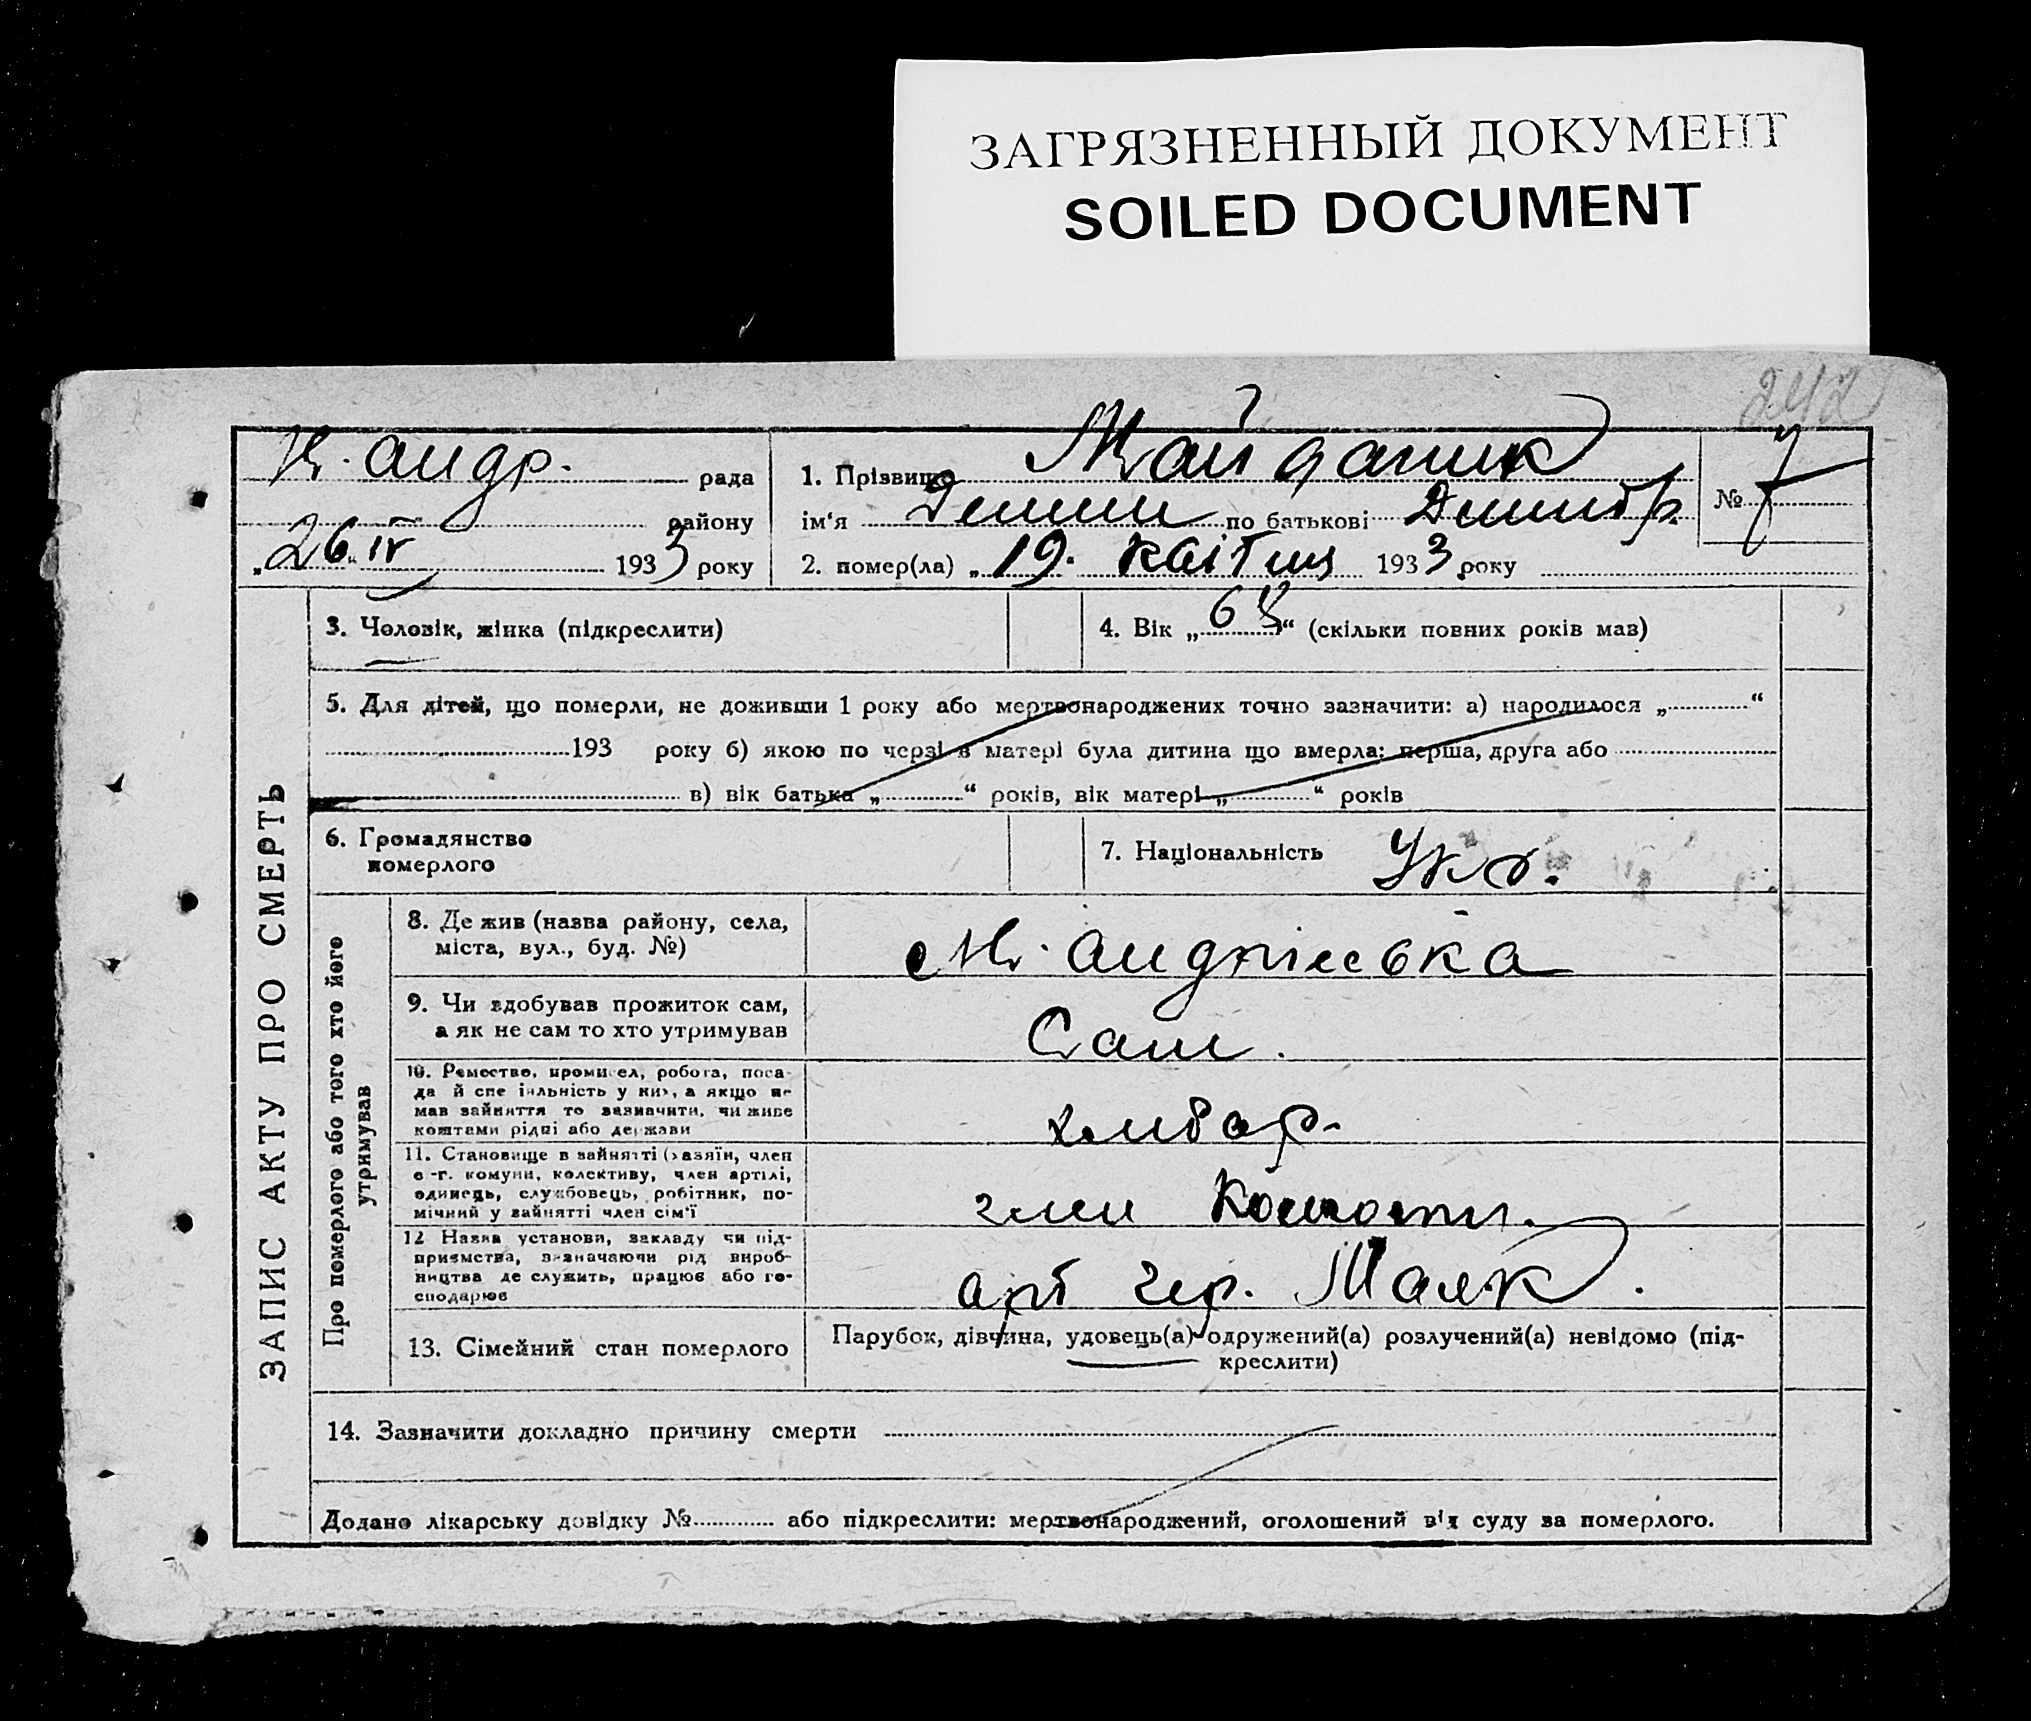 ЗАГРЯЗНЕННЫЙ ДОКУМЕНТ
SOILED DOCUMENT
242
андр. рада
району
„26“ IV 1933 року
1. Прізвище Майданик
ім‘я по батькові Дмитр.
2. помер(ла) „19. квітня 1933 року
№ 7
ЗАПИС АКТУ ПРО СМЕРТЬ
3. Чоловік, жінка (підкреслити)
4. Вік „68“ (скільки повних років мав)
5. Для дітей, що померли, не доживши 1 року або мертвонароджених точно зазначити: а) народилося „ “
193 року б) якою по черзі в матері була дитина що вмерла: перша, друга або
в) вік батька „ “ років, вік матері „ “ років
6. Громадянство
померлого
7. Національність Укр.
Про померлого або того хто його
утримував
8. Де жив (назва району, села,
міста, вул., буд. №)
М. Андріївка
9. Чи здобував прожиток сам,
а як не сам то хто утримував
Сам.
10. Ремество, промисел, робота, поса-
да й спеціальність у них, а якщо не
мав зайняття то зазначити, чи живе
коштами рідні або держави
хлібор.
11. Становище в зайнятті (хазяїн, член
с.-г. комуни, колективу, член артілі,
одинець, службовець, робітник, по-
мічний у зайнятті член сім‘ї
член
12 Назва установи, закладу чи під-
приємства, визначаючи рід вироб-
ництва де служить, працює або го-
сподарює
арт Чер. Маяк.
13. Сімейний стан померлого
Парубок, дівчина, удовець(а) одружений(а) розлучений(а) невідомо (під-
креслити)
14. Зазначити докладно причину смерти
Додано лікарську довідку № або підкреслити: мертвонароджений, оголошений від суду за померлого.